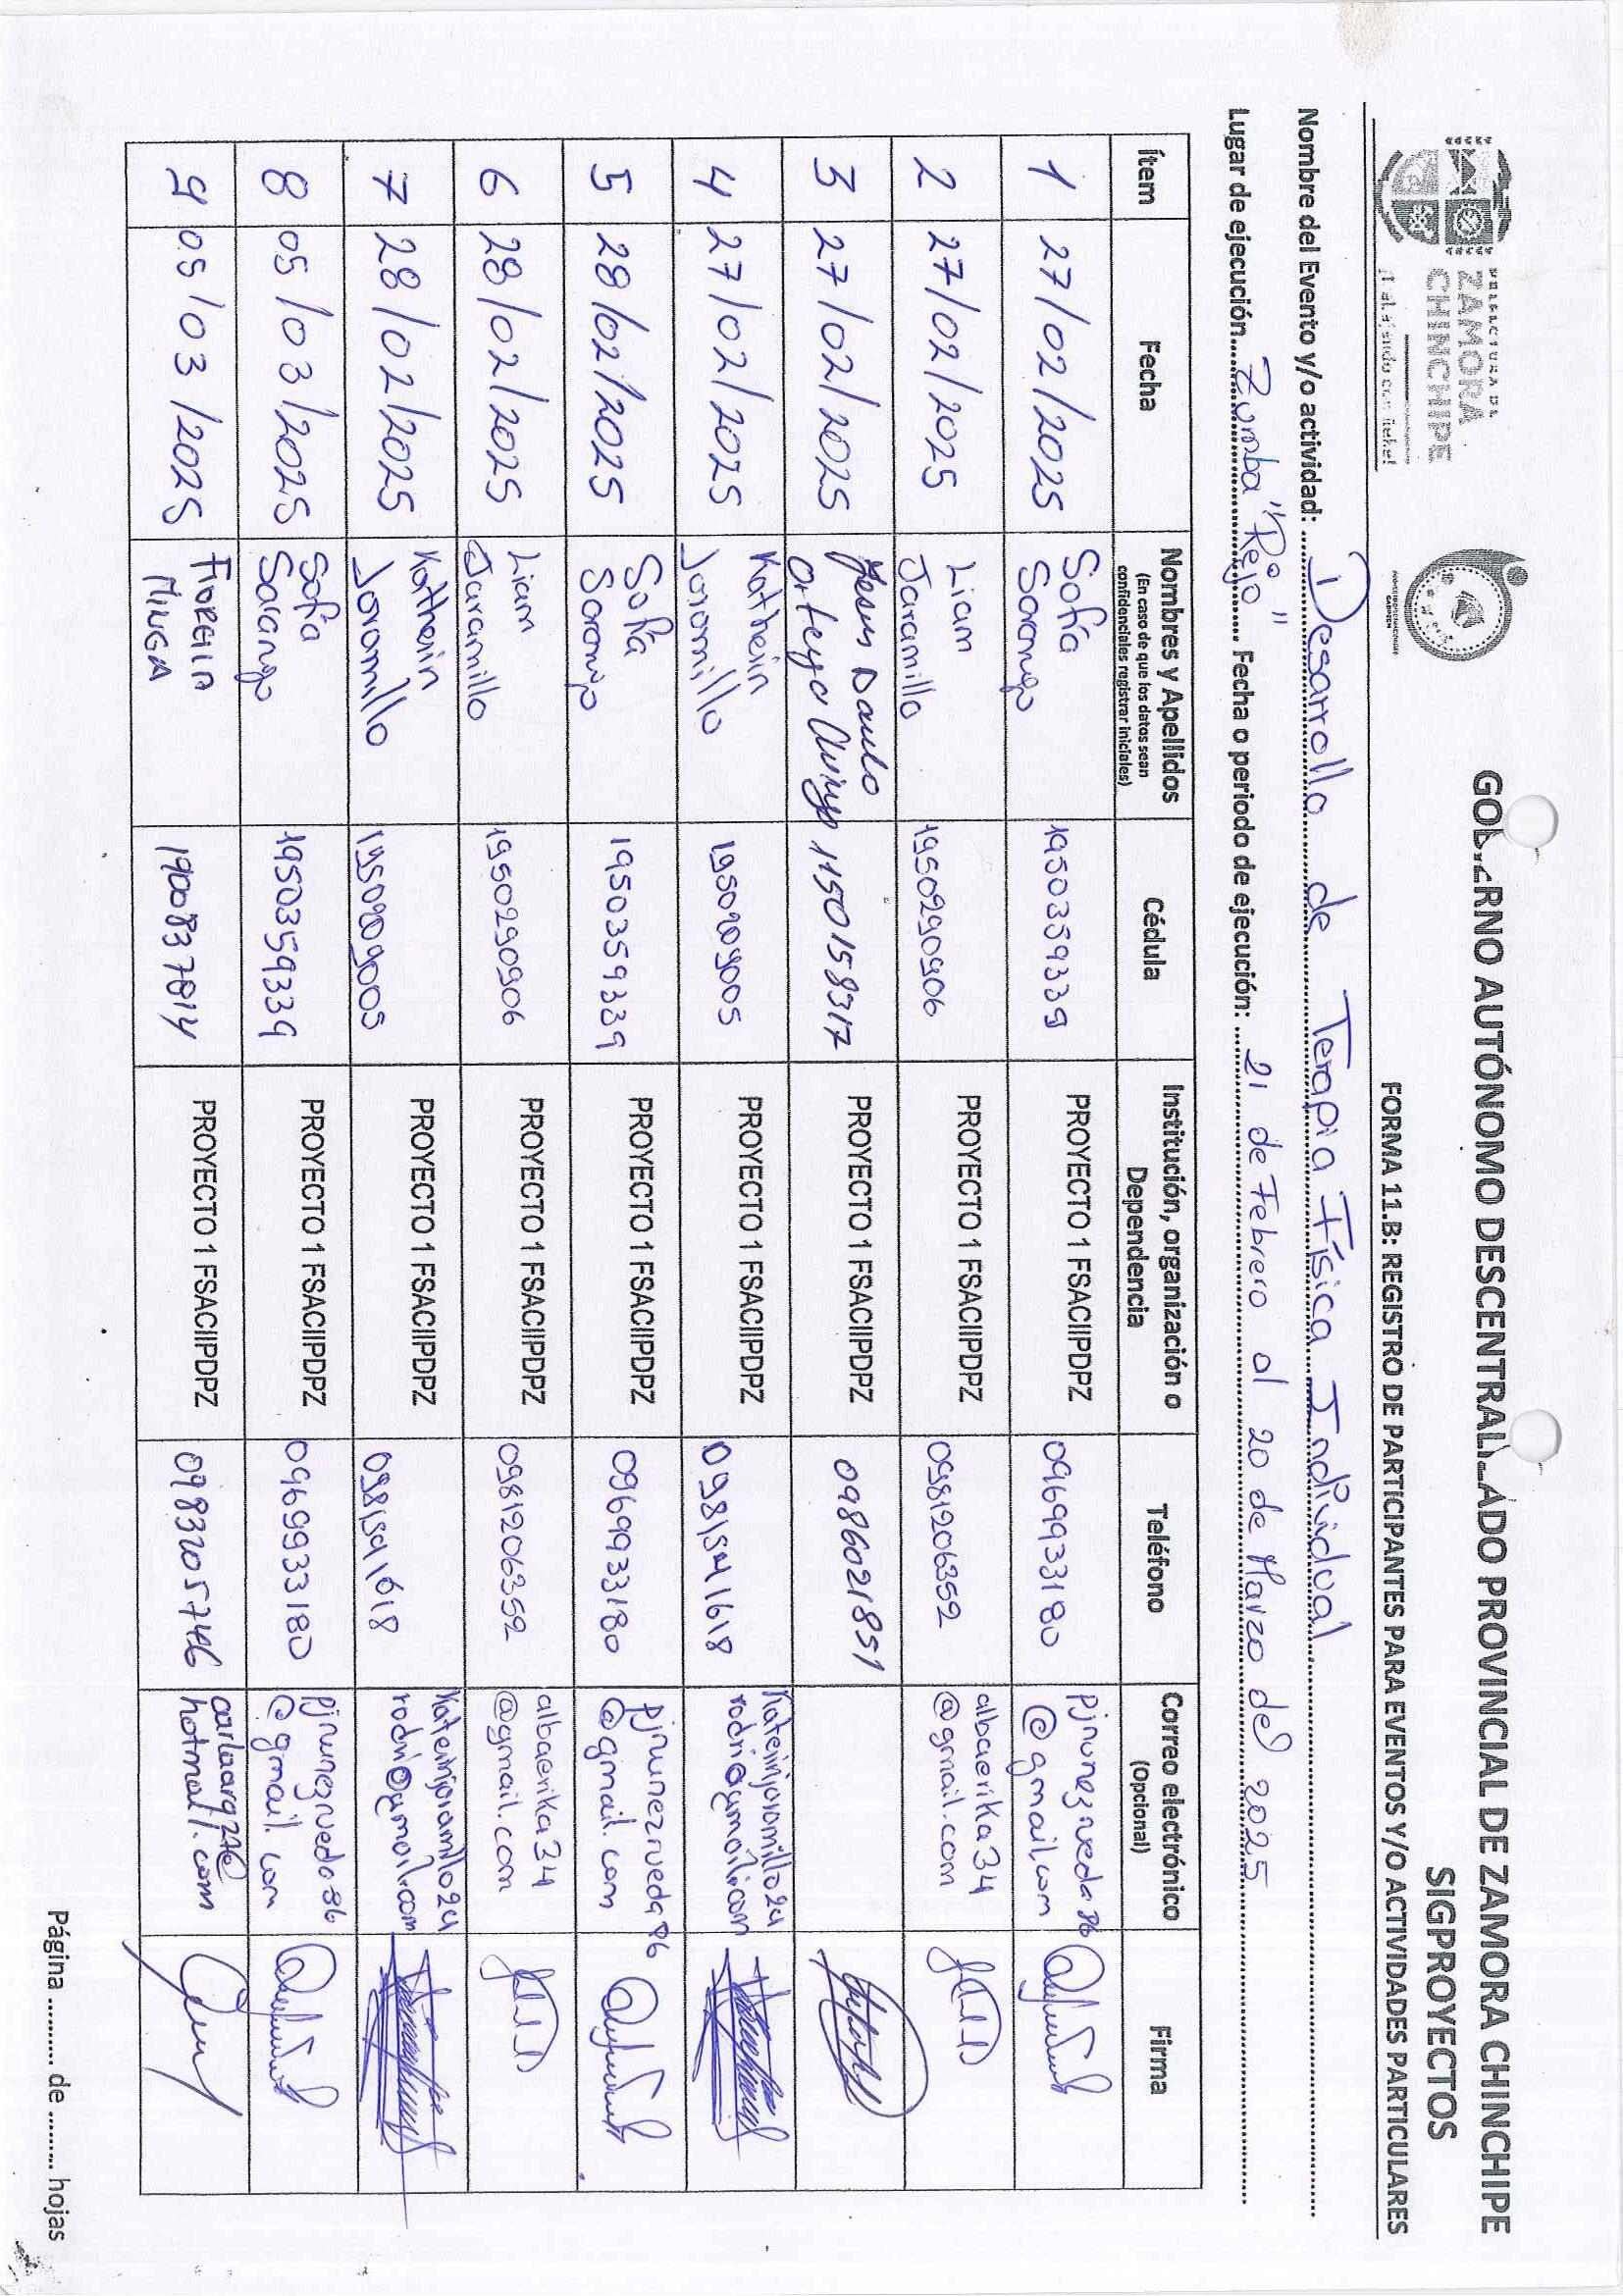 PREFECTURA DE
ZAMORA
CHINCHIPE
GOBIERNO AUTÓNOMO DESCENTRALIZADO PROVINCIAL DE ZAMORA CHINCHIPE
SIGPROYECTOS
FORMA 11.B: REGISTRO DE PARTICIPANTES PARA EVENTOS Y/O ACTIVIDADES PARTICULARES
Nombre del Evento y/o actividad: Desarrollo de Terapia Física Individual
Lugar de ejecución Zumba "Rejo" Fecha o periodo de ejecución: 21 de Febrero al 20 de Marzo del 2025
Ítem Fecha Nombres y Apellidos (En caso de que los datos sean confidenciales registrar iniciales) Cédula Institución, organización o Dependencia Teléfono Correo electrónico (Opcional) Firma
1 27/02/2025 Sofía Sarango 1950359339 PROYECTO 1 FSACIIPDPZ 0969933180 pjnunezrueda86@gmail.com
2 27/02/2025 Liam Jaramillo 1950290906 PROYECTO 1 FSACIIPDPZ 0981206352 albaerika34@gmail.com
3 27/02/2025 Jesus Danilo Ortega 1150158317 PROYECTO 1 FSACIIPDPZ 0986021851
4 27/02/2025 Katherin Jaramillo 1950209005 PROYECTO 1 FSACIIPDPZ 0981541618
5 28/02/2025 Sofía Sarango 1950359339 PROYECTO 1 FSACIIPDPZ 0969933180 pjnunezrueda86@gmail.com
6 28/02/2025 Liam Jaramillo 1950290906 PROYECTO 1 FSACIIPDPZ 0981206352 albaerika34@gmail.com
7 28/02/2025 Katherin Jaramillo 1950209005 PROYECTO 1 FSACIIPDPZ 0981541618
8 05/03/2025 Sofía Sarango 1950359339 PROYECTO 1 FSACIIPDPZ 0969933180 pjnunezrueda86@gmail.com
9 05/03/2025 Fiorella Minga PROYECTO 1 FSACIIPDPZ
Página ......... de ......... hojas